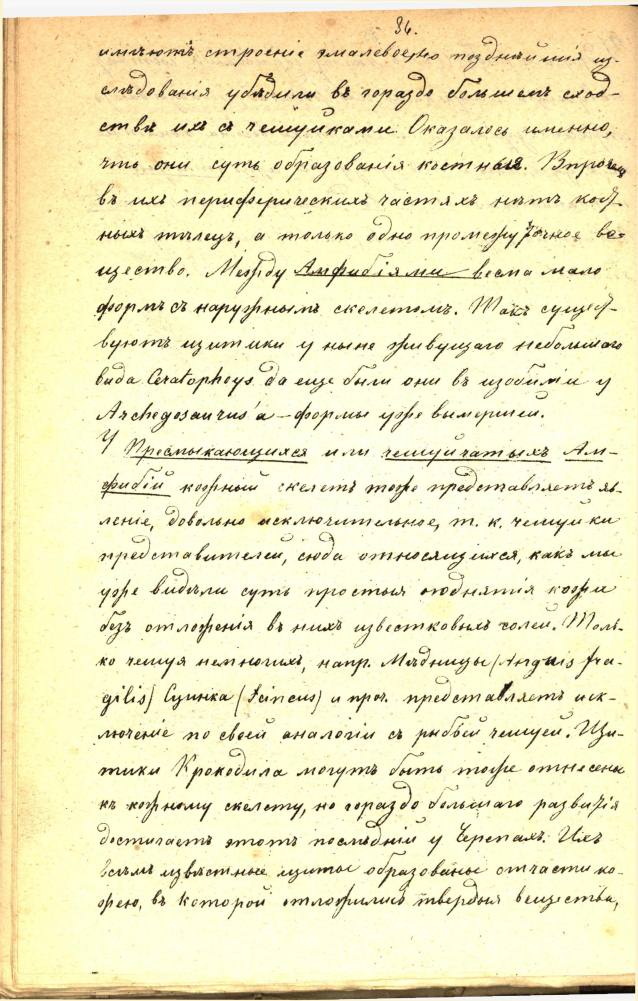 36.
имѣютъ строеніе эмалевое, но позднѣйшія из-
слѣдованія убѣдили въ гораздо большемъ сход-
ствѣ ихъ съ чешуйками. Оказалось именно,
что они суть образованія костныя. Впрочемъ
въ ихъ периферическихъ частяхъ нѣтъ кост-
ныхъ тѣлецъ, а только одно промежуточное ве-
щество. Между Амфибіями весма мало
формъ съ наружнымъ скелетомъ. Такъ сущест-
вуютъ щитики у ныне живущаго небольшаго
вида Ceratophrys да еще были они въ изобиліи у
Archegosaurus'a – формы уже вымершей.
У Пресмыкающихся или чешуйчатыхъ Ам-
фибій кожный скелетъ тоже представляетъ яв-
леніе, довольно исключительное, т. к. чешуйки
представителей, сюда относящихся, какъ мы
уже видѣли суть простыя поднятія кожи
безъ отложенія въ нихъ известковыхъ солей. Толь-
ко чешуя немногихъ, напр. Мѣдницы (Anguis fra-
gilis) Сцинка (Scincus) и проч. представляетъ иск-
люченіе по своей аналогіи съ рыбьей чешуей. Щи-
тики Крокодила могутъ быть тоже отнесены
къ кожному скелету, но гораздо большаго развитія
достигаетъ этотъ послѣдній у Черепахъ. Ихъ
всѣмъ извѣстные щиты образованы отчасти ко-
жею, въ которой отложились твердыя вещества,